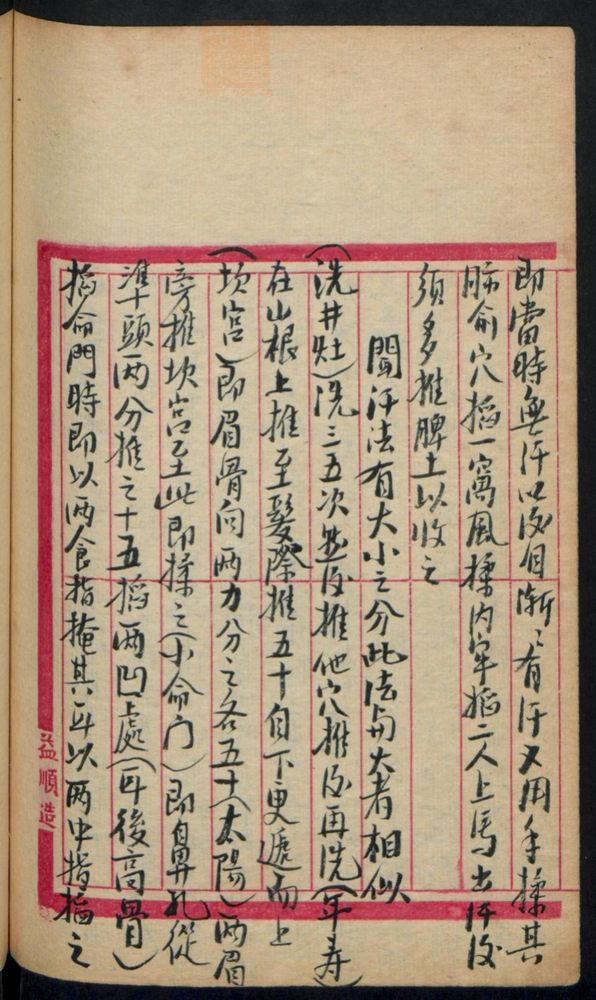 即當時無汗以後自漸漸有汗又用手揉其
肺俞穴掐一窩風揉內牢掐二人上馬出汗後
須多推脾土以收之
聞汗法有大小之分此法與大者相似
(洗井灶)洗三五次然後推他穴推後再洗(年寿)
在山根上推至髮際推五十自下更遞而上
(坎宮)即眉骨向兩方分之各五十(太陽)兩眉
旁推坎宮至此即揉之(小命门)即鼻孔從
準頭两分推之十五掐两凹處(耳後高骨)
掐命門時即以两食指掩其耳以两中指掐之
益順造